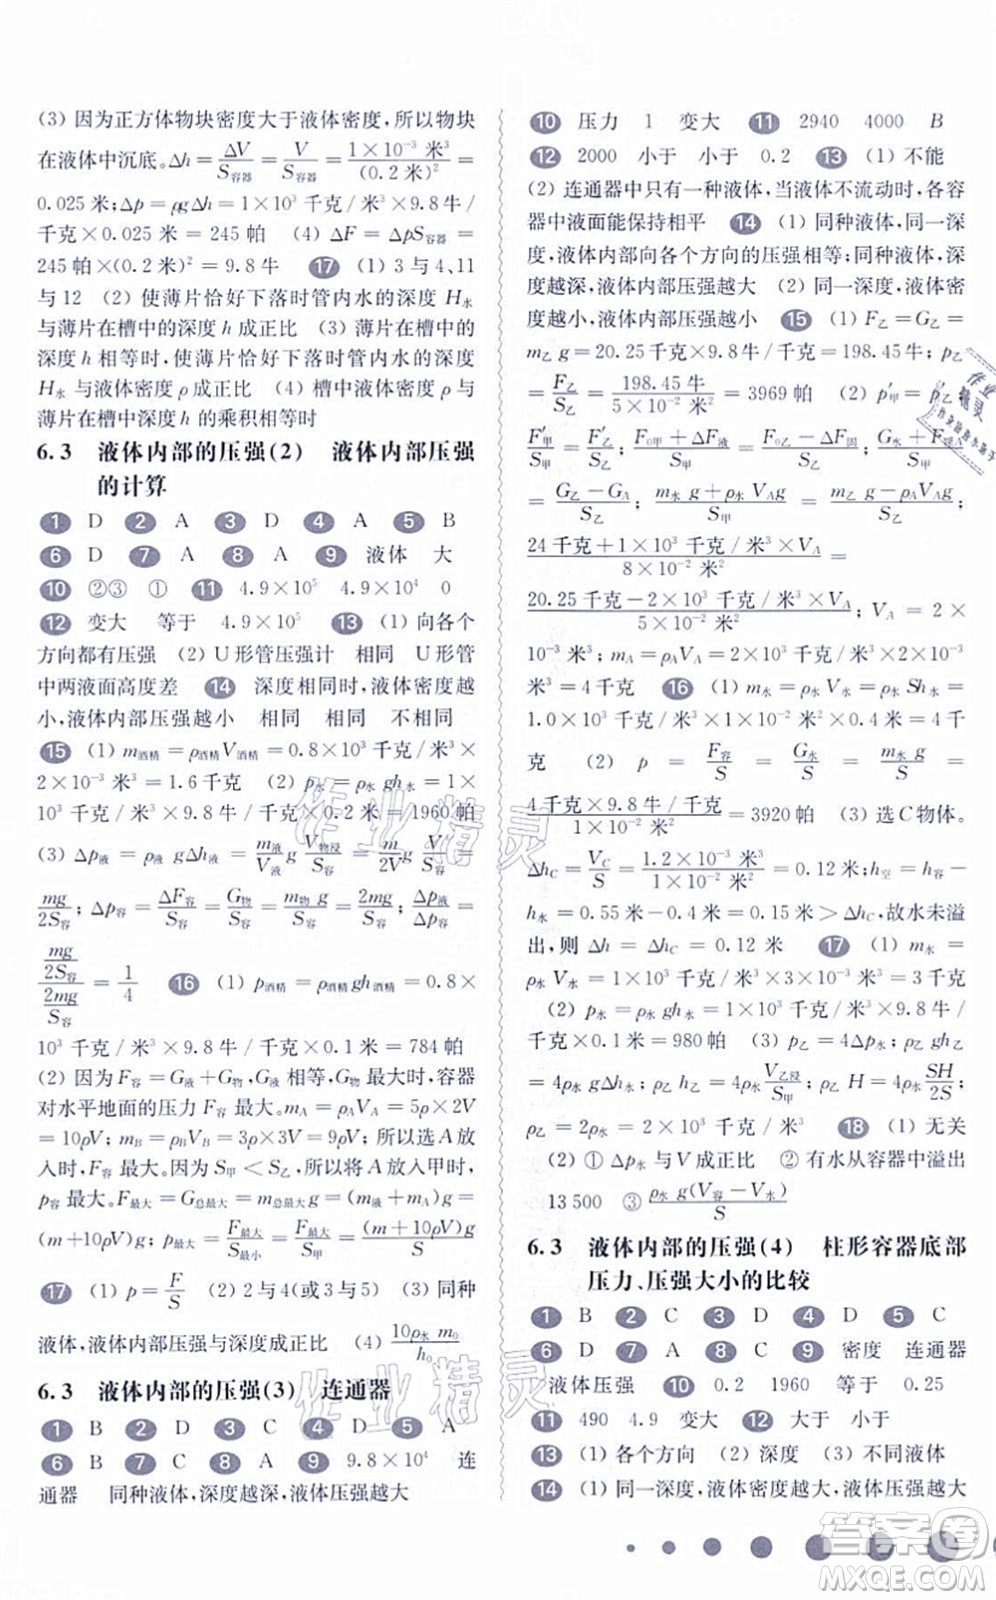 (3) 因为正方体物块密度大于液体密度,所以物块
在液体中沉底。Δh = ΔV/S容器 = V/S容器 = (1×10⁻³ 米³)/(0.2 米)² =
0.025 米; Δp = ρgΔh = 1×10³ 千克/米³×9.8 牛/
千克×0.025 米 = 245 帕 (4) ΔF = ΔpS容器 =
245 帕×(0.2 米)² = 9.8 牛 17 (1) 3 与 4、11
与 12 (2) 使薄片恰好下落时管内水的深度 H水
与薄片在槽中的深度 h 成正比 (3) 当薄片在槽中的
深度 h 相等时,使薄片恰好下落时管内水的深度
H水 与液体密度 ρ 成正比 (4) 槽中液体的密度 ρ 与
薄片在槽中深度 h 的乘积相等时
6.3 液体内部的压强(2) 液体内部压强
的计算
1 D 2 A 3 D 4 A 5 B
6 D 7 A 8 A 9 液体 大
10 ②③ ① 11 4.9×10⁵ 4.9×10⁴ 0
12 变大 等于 4.9×10⁵ 13 (1) 向各个
方向都有压强 (2) U 形管压强计 相同 U 形管
中两液面高度差 14 深度相同时,液体密度越
小,液体内部压强越小 相同 相同 不相同
15 (1) m酒精 = ρ酒精V酒精 = 0.8×10³ 千克/米³×
2×10⁻³ 米³ = 1.6 千克 (2) p水 = ρ水 gh水 = 1×
10³ 千克/米³×9.8 牛/千克×0.2 米 = 1960 帕
(3) Δp液 = ρ液 gΔh液 = m液/V液 g V物浸/S容 = m/2V g 2V/S容 =
mg/2S容; Δp容 = ΔF容/S容 = G物/S容 = m物 g/S容 = 2mg/S容; Δp液/Δp容 =
(mg/2S容)/(2mg/S容) = 1/4 16 (1) p酒精 = ρ酒精gh酒精 = 0.8×
10³ 千克/米³×9.8 牛/千克×0.1 米 = 784 帕
(2) 因为 F容 = G液 + G物,G液 相等,G物最大时,容器
对水平地面的压力 F容 最大。mA = ρAVA = 5ρ×2V
= 10ρV; mB = ρBVB = 3ρ×3V = 9ρV; 所以选 A 放
入时, F容 最大。因为 S甲 < S乙,所以将 A 放入甲时,
p容 最大。F最大 = G总最大 = m总最大g = (m液 + mA)g =
(m+10ρV)g; p最大 = F最大/S最小 = F最大/S甲 = (m+10ρV)g/S甲
17 (1) p = F/S (2) 2 与 4 与 5 (3) 同种
液体,液体内部压强与深度成正比 (4) 10ρ水 m₀/h₀
6.3 液体内部的压强(3) 连通器
1 B 2 D 3 C 4 D 5 A
6 B 7 C 8 A 9 9.8×10⁴ 连
通器 同种液体,深度越深,液体压强越大
10 压力 1 变大 11 2940 4000 B
12 2000 小于 小于 0.2 13 (1) 不能
(2) 连通器中只有一种液体,当液体不流动时,各容
器中液面能保持相平 14 (1) 同种液体,同一深
度,液体内部向各个方向的压强相等;同种液体,深
度越深,液体内部压强越大 (2) 同一深度,液体密
度越小,液体内部压强越小 15 (1) F乙 = G乙 =
m乙 g = 20.25 千克×9.8 牛/千克 = 198.45 牛; p乙
= F乙/S乙 = 198.45 牛/(5×10⁻² 米²) = 3969 帕 (2) p′甲 = p′乙
F′甲/S甲 = F′乙/S乙; (F0甲 + ΔF甲)/S甲 = (F乙 − ΔF固)/S乙; (G水 + GA)/S甲
= (G乙 − GA)/S乙; (m水 g + ρ水 VAg)/S甲 = (m乙 g − ρAVAg)/S乙;
(24 千克 + 1×10³ 千克/米³×VA)/(8×10⁻² 米²) =
(20.25 千克 − 2×10³ 千克/米³×VA)/(5×10⁻² 米²); VA = 2×
10⁻³ 米³; mA = ρAVA = 2×10³ 千克/米³×2×10⁻³
米³ = 4 千克 16 (1) m水 = ρ水 V水 = ρ水 Sh水 =
1.0×10³ 千克/米³×1×10⁻² 米²×0.4 米 = 4 千
克 (2) p = F容/S = G水/S = m水 g/S =
(4 千克×9.8 牛/千克)/(1×10⁻² 米²) = 3920 帕 (3) 选 C 物体。
ΔhC = VC/S = (1.2×10⁻³ 米³)/(1×10⁻² 米²) = 0.12 米; h空 = h容 −
h水 = 0.55 米 − 0.4 米 = 0.15 米 > ΔhC,故水未溢
出, 则 Δh = ΔhC = 0.12 米 17 (1) m水 =
ρ水 V水 = 1×10³ 千克/米³×3×10⁻³ 米³ = 3 千克
(2) p水 = ρ水 gh水 = 1×10³ 千克/米³×9.8牛/
千克×0.1 米 = 980 帕 (3) p乙 = 4Δp水; ρ乙 gh乙
= 4ρ水 gΔh水; ρ乙 H = 4ρ水 V乙浸/S甲; ρ乙 H = 4ρ水 SH/2S;
ρ乙 = 2ρ水 = 2×10³ 千克/米³ 18 (1) 无关
(2) ① Δp水 与 V 成正比 ② 有水从容器中溢出
13 500 ③ ρ水 g(V容 − V水)/S
6.3 液体内部的压强(4) 柱形容器底部
压力、压强大小的比较
1 B 2 C 3 D 4 D 5 C
6 D 7 A 8 C 9 密度 连通器
液体压强 10 0.2 1960 等于 0.25
11 490 4.9 变大 12 大于 小于
13 (1) 各个方向 (2) 深度 (3) 不同液体
14 (1) 同一深度,液体密度越大,液体压强越大
作业精灵
作业精灵
答案圈
MXQE.COM